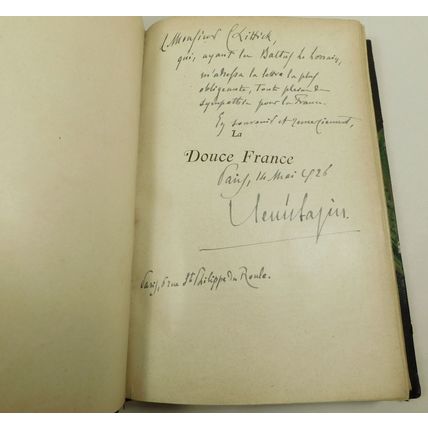 à Monsieur C. Littick,
qui, ayant lu Baltus le Lorrain,
m'adressa la lettre la plus
obligeante, toute pleine de
sympathie pour la France.
En souvenir et remerciement,
La
Douce France
Paris, 14 Mai 1926
René Bazin.
Paris, 6 rue St Philippe du Roule.